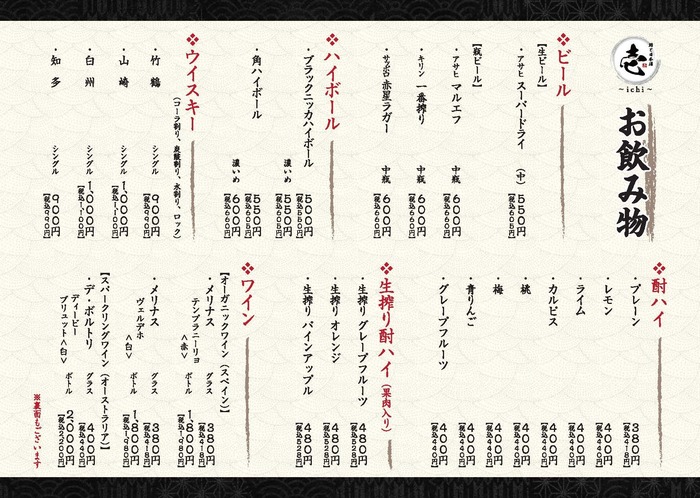 壱
~ichi~
お飲み物
❖ビール
【生ビール】
・アサヒ スーパードライ (中) 550円
【税込605円】
【瓶ビール】
・アサヒ マルエフ 中瓶 600円
【税込660円】
・キリン 一番搾り 中瓶 600円
【税込660円】
・サッポロ 赤星ラガー 中瓶 600円
【税込660円】
❖ハイボール
・ブラックニッカハイボール 500円
【税込550円】
濃いめ 550円
【税込605円】
・角ハイボール 550円
【税込605円】
濃いめ 600円
【税込660円】
❖ウイスキー
(コーラ割り、炭酸割り、水割り、ロック)
・竹鶴 シングル 900円
【税込990円】
・山崎 シングル 1,000円
【税込1,100円】
・白州 シングル 1,000円
【税込1,100円】
・知多 シングル 900円
【税込990円】
❖酎ハイ
・プレーン 380円
【税込418円】
・レモン 400円
【税込440円】
・ライム 400円
【税込440円】
・カルピス 400円
【税込440円】
・桃 400円
【税込440円】
・梅 400円
【税込440円】
・青りんご 400円
【税込440円】
・グレープフルーツ 400円
【税込440円】
❖生搾り酎ハイ(果肉入り)
・生搾り グレープフルーツ 480円
【税込528円】
・生搾り オレンジ 480円
【税込528円】
・生搾り パインアップル 480円
【税込528円】
❖ワイン
【オーガニックワイン(スペイン)】
・メリナス グラス 380円
【税込418円】
テンプラニーリョ <赤> ボトル 1,800円
【税込1,980円】
・メリナス グラス 380円
【税込418円】
ヴェルデホ <白> ボトル 1,800円
【税込1,980円】
【スパークリングワイン(オーストラリア)】
・デ・ボルトリ グラス 400円
【税込440円】
ディービー
ブリュット<白> ボトル 2,000円
【税込2,200円】
※裏面もございます